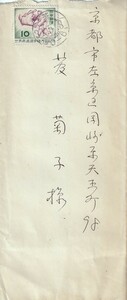 京都市左京区岡崎東天王町98
菊子様
10